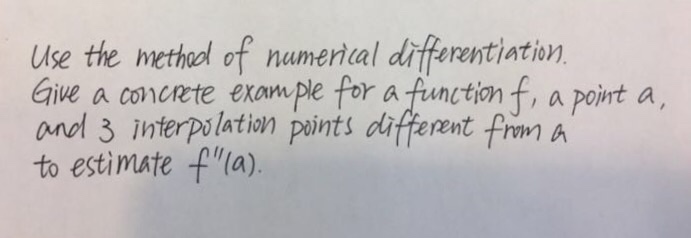 Use the method of numerical differentiation.
Give a concrete example for a function f, a point a,
and 3 interpolation points different from a
to estimate f"(a).